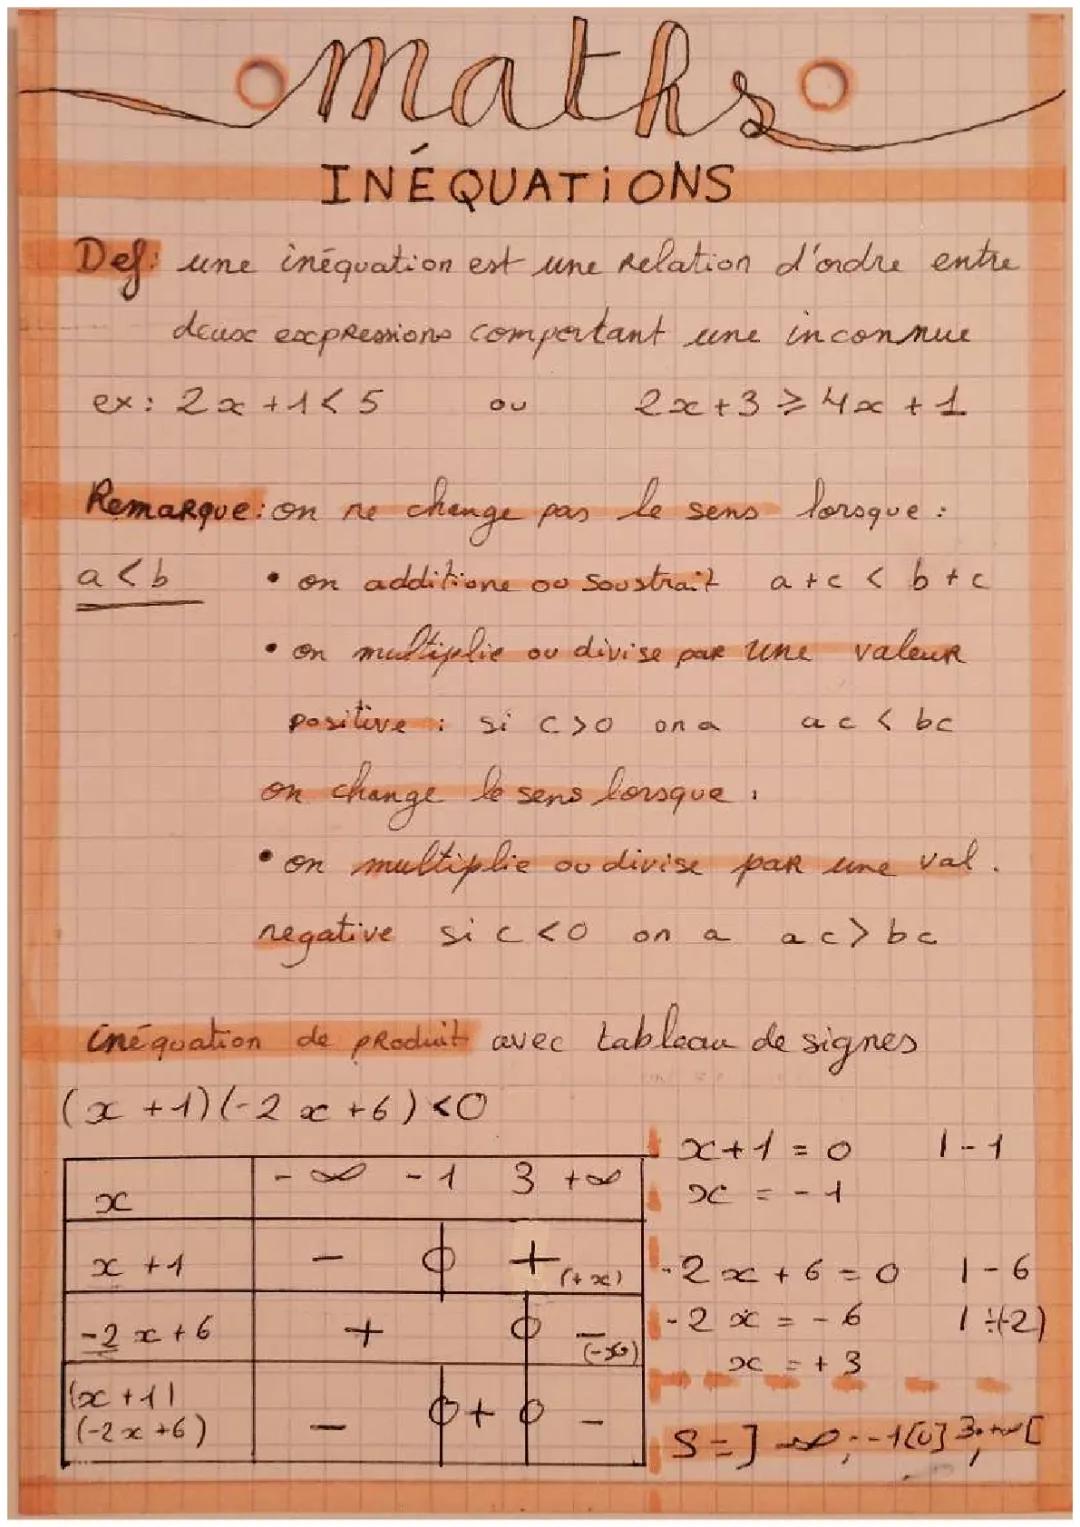 maths
INÉQUATIONS
Def: une inéquation est une relation d'ordre entre
deux expressions comportant une inconnue
ex: 2x+1<5 ou 2x+3⩾4x+1
Remarque: on ne change pas le sens lorsque :
a<b • on additione ou soustrait a+c < b+c
• on multiplie ou divise par une valeur
positive : si c>0 on a ac < bc
on change le sens lorsque :
• on multiplie ou divise par une val.
negative si c<0 on a ac> bc
inéquation de produit avec tableau de signes
(x+1)(-2x+6)<0
x -∞ -1 3 +∞
x+1 - 0 + (+x)
-2x+6 + 0 - (-x)
(x+1)
(-2x+6) - 0 + 0 -
x+1=0 |-1
x = -1
-2x+6=0 |-6
-2x = -6 |÷(-2)
x = +3
S=]-∞;-1[U]3;+∞[